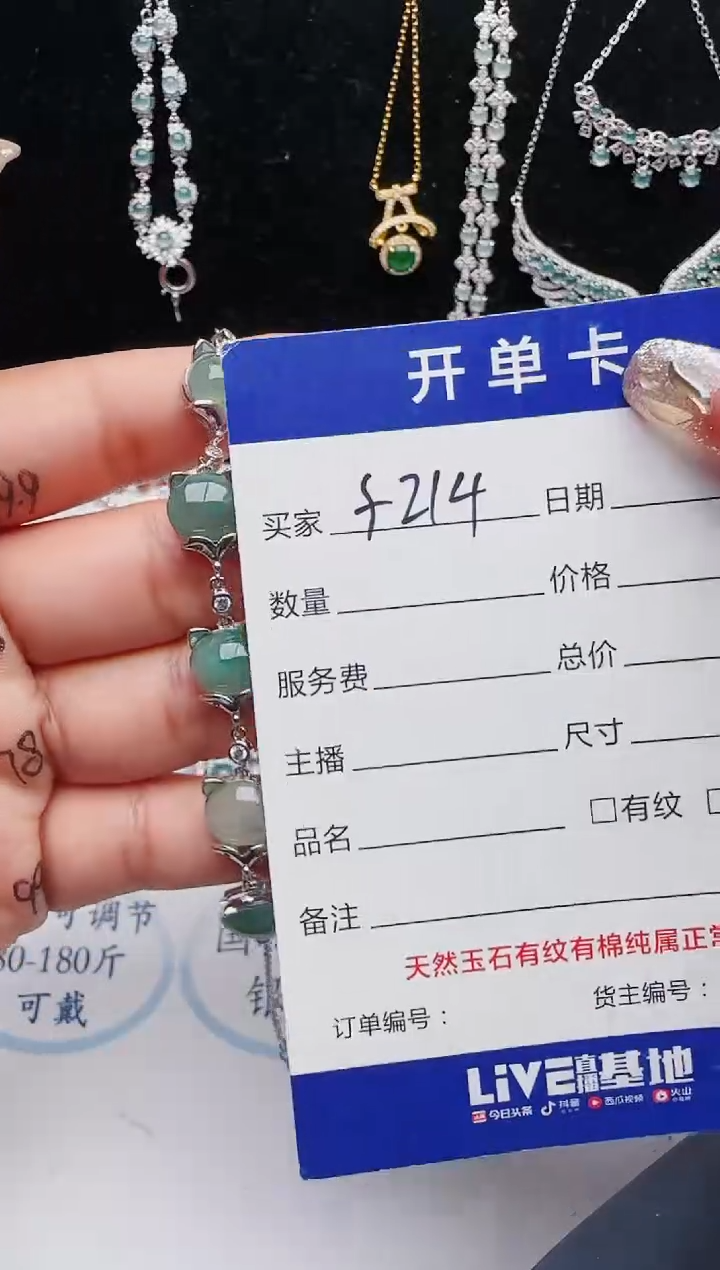 开单卡
买家 f214 日期
数量 价格
服务费 总价
主播 尺寸
品名 □有纹
备注
天然玉石有纹有棉纯属正常
订单编号： 货主编号：
LiVE直播基地
今日头条 抖音 西瓜视频 火山
9.9
78
可调节
80-180斤
可戴
国
银